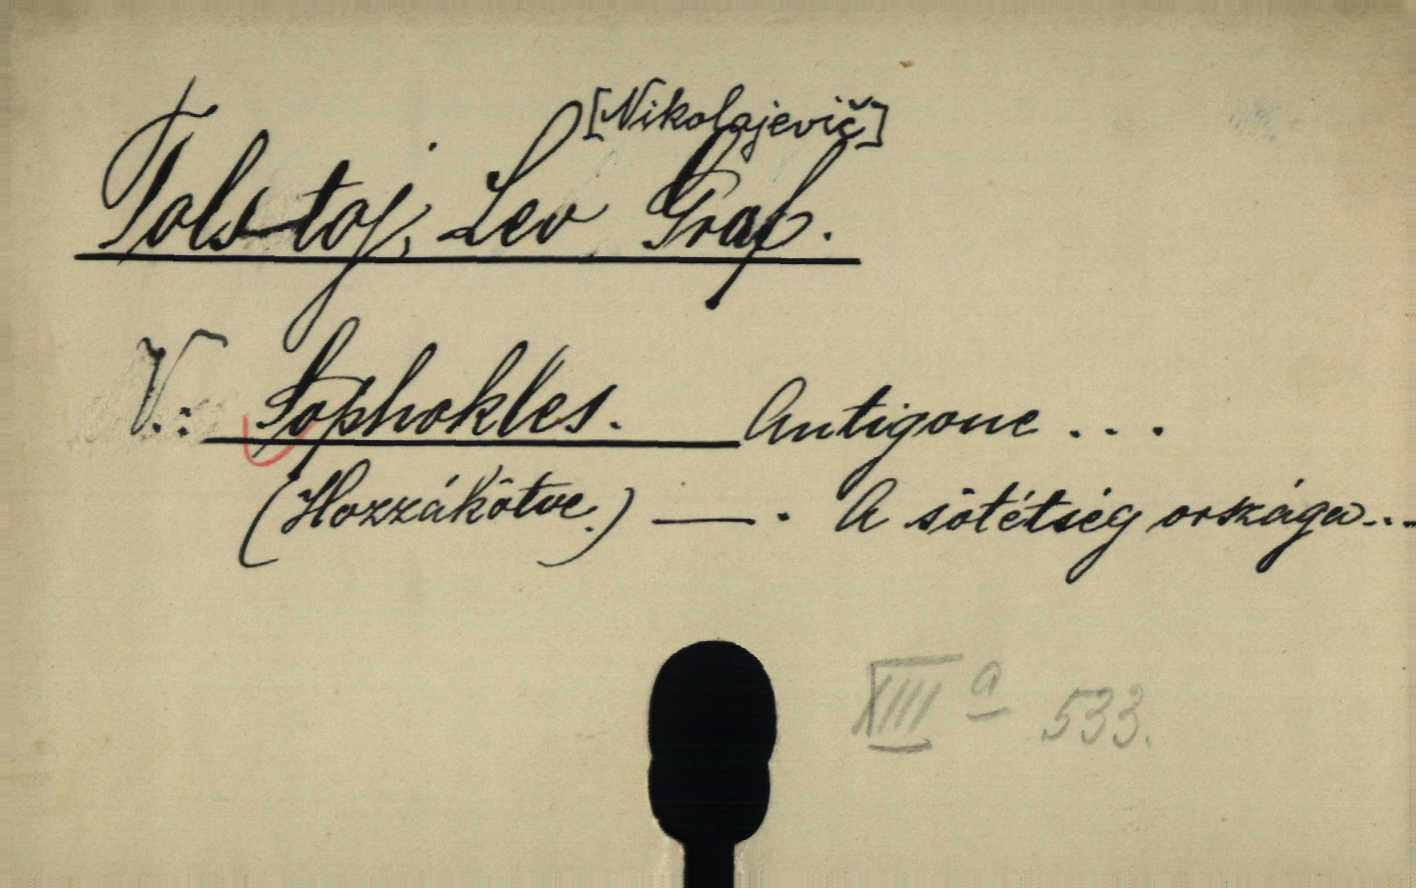 [Nikolajevič]
Tolstoj, Lev Graf.
V.: Sophokles. Antigone ...
(Hozzákötve.) —. A sötétség országa...
XIII a 533.